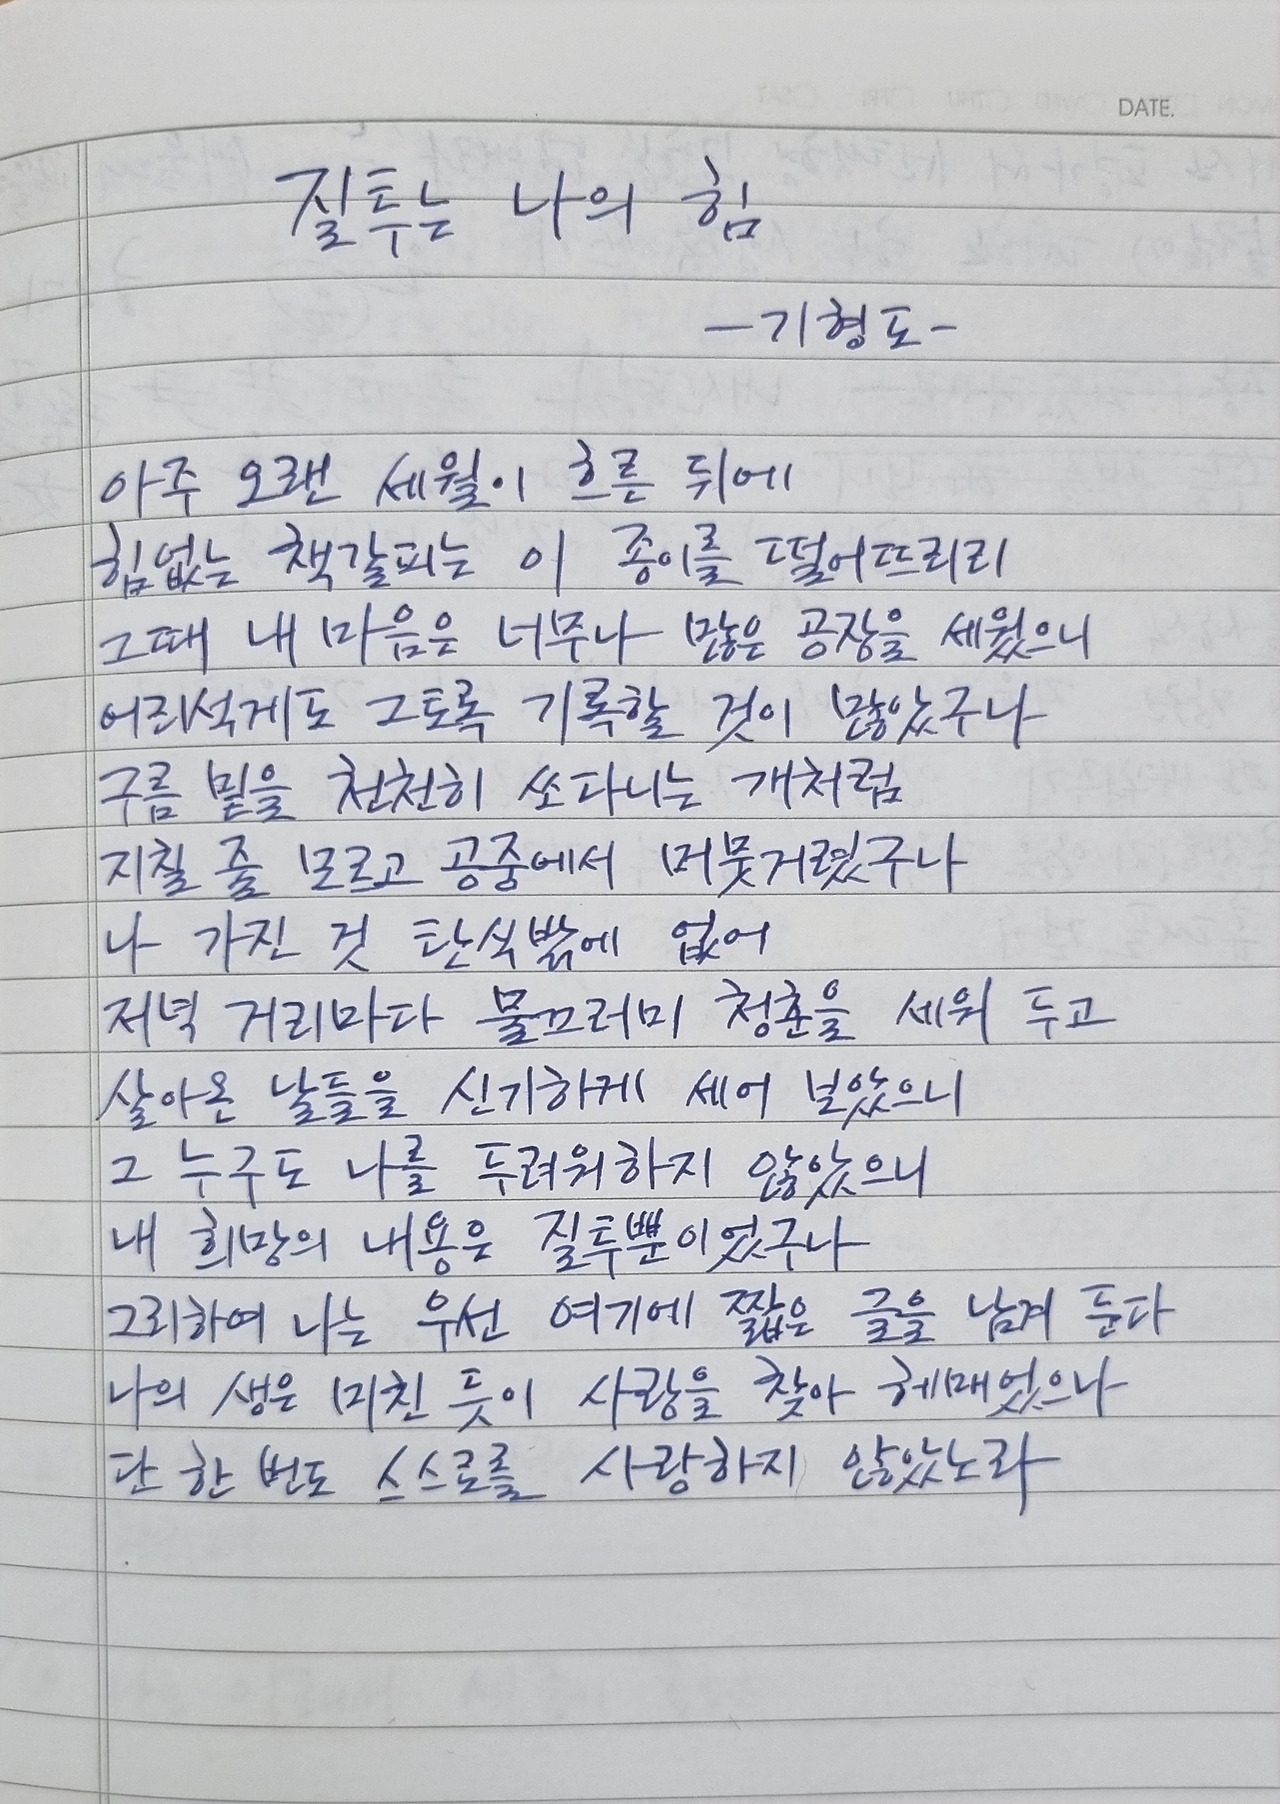 DATE.
질투는 나의 힘
-기형도-
아주 오랜 세월이 흐른 뒤에
힘없는 책갈피는 이 종이를 떨어뜨리리
그때 내 마음은 너무나 많은 공장을 세웠으니
어리석게도 그토록 기록할 것이 많았구나
구름 밑을 천천히 쏘다니는 개처럼
지칠 줄 모르고 공중에서 머뭇거렸구나
나 가진 것 탄식밖에 없어
저녁 거리마다 물끄러미 청춘을 세워 두고
살아온 날들을 신기하게 세어 보았으니
그 누구도 나를 두려워하지 않았으니
내 희망의 내용은 질투뿐이었구나
그리하여 나는 우선 여기에 짧은 글을 남겨 둔다
나의 생은 미친 듯이 사랑을 찾아 헤매었으나
단 한 번도 스스로를 사랑하지 않았노라